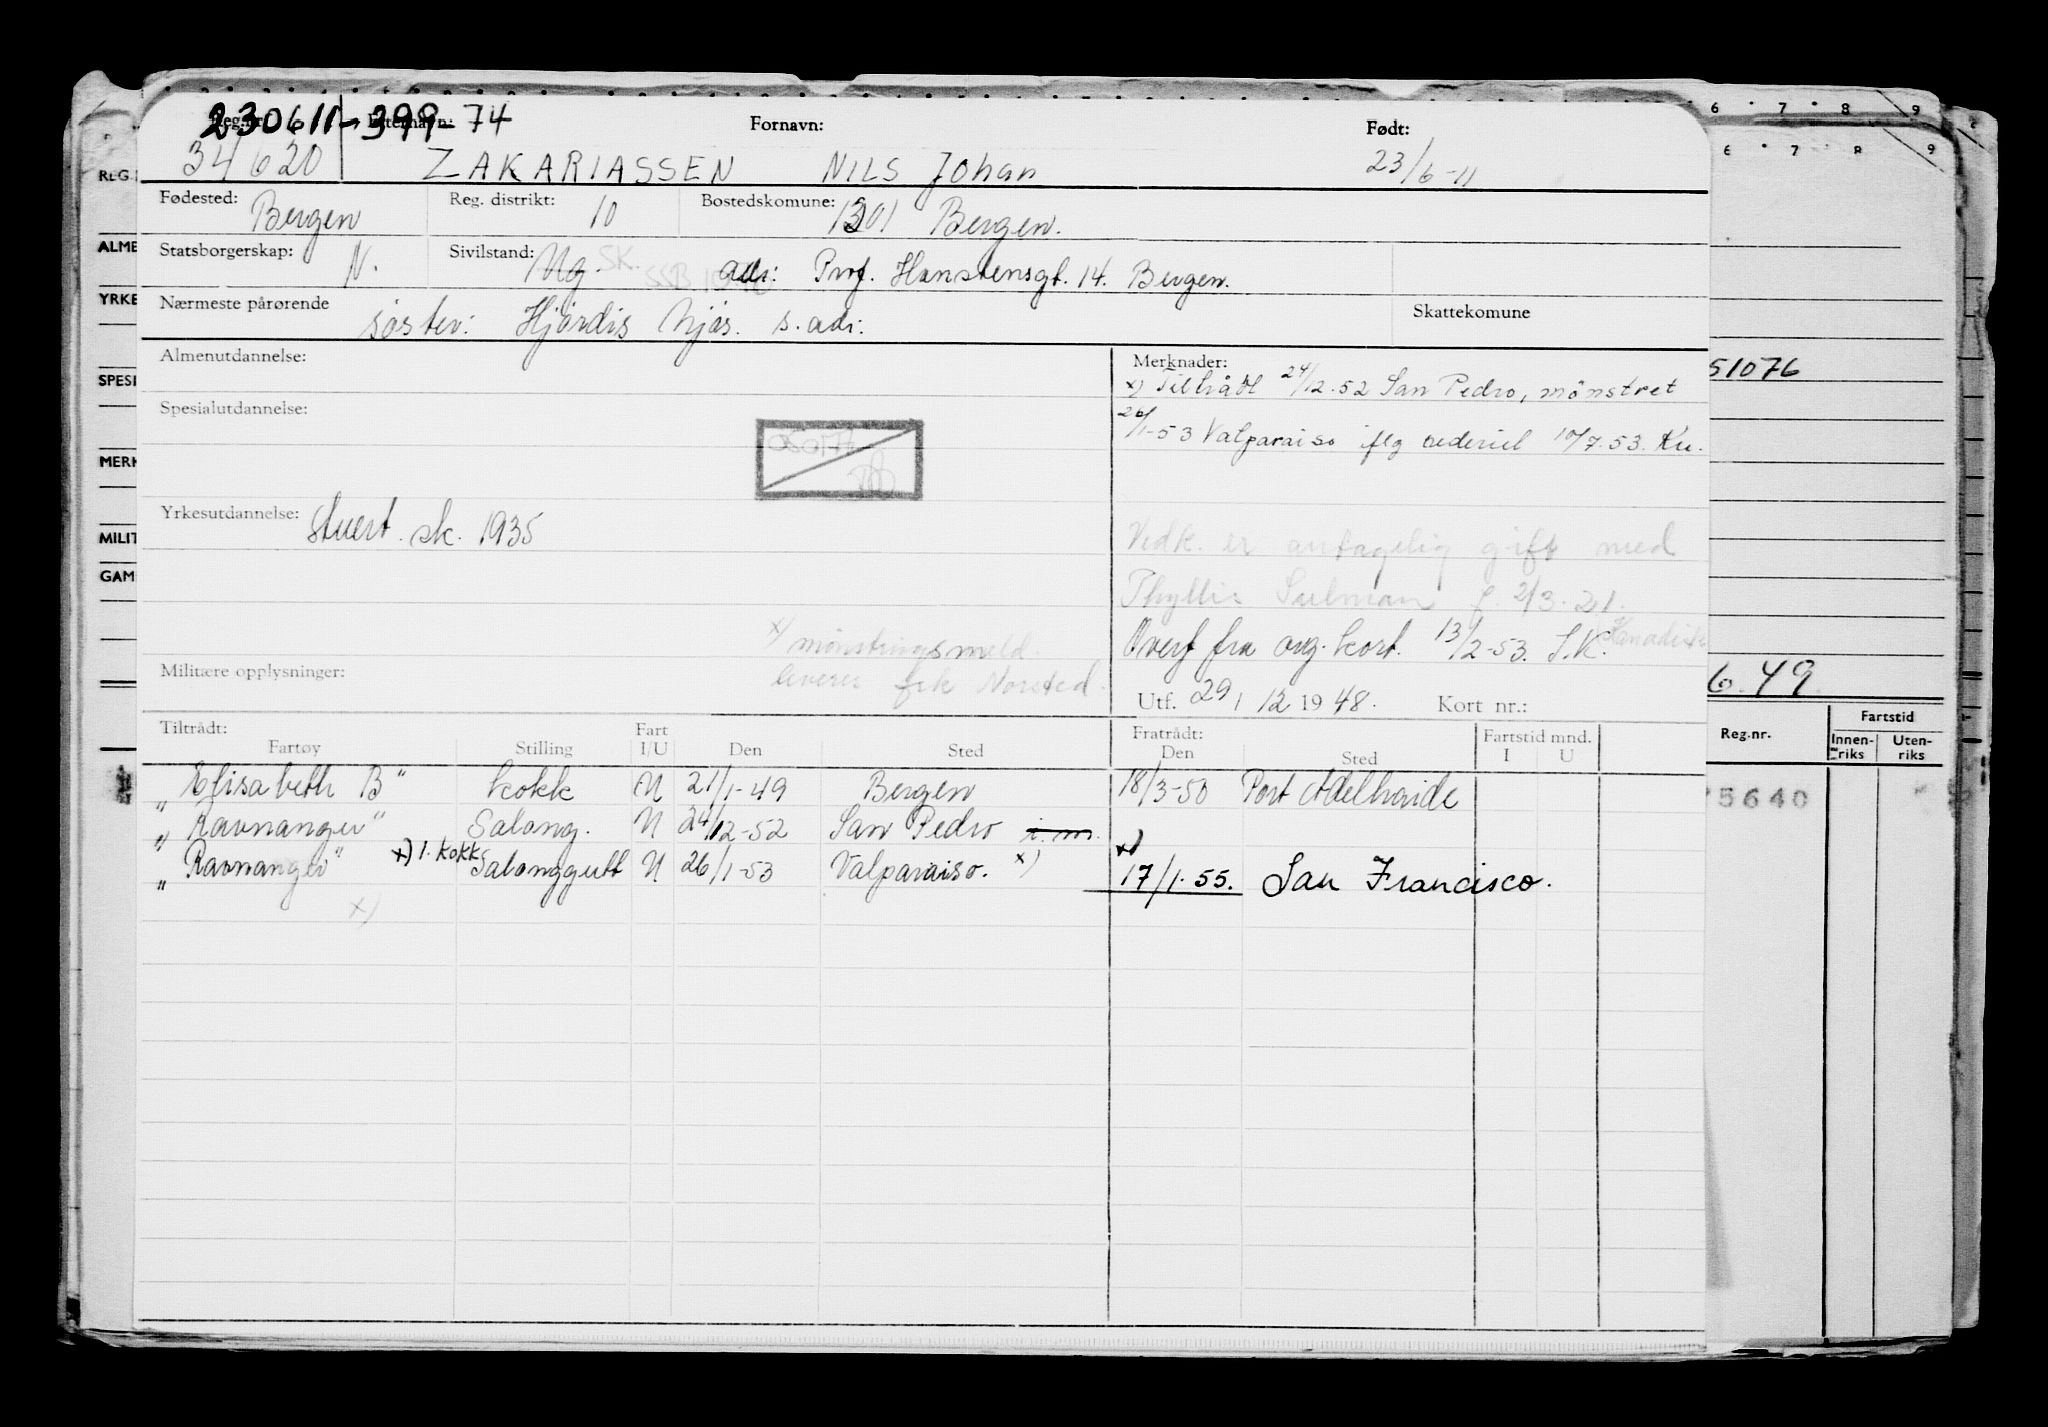 230611-399-74
Reg.nr. Etternavn: Fornavn: Født:
34620 ZAKARIASSEN NILS Johan 23/6-11
Fødested: Bergen Reg. distrikt: 10 Bostedskomune: 1301 Bergen.
Statsborgerskap: N. Sivilstand: Ug. SK. adr: Prof. Hanstensgt. 14. Bergen.
Nærmeste pårørende søster: Hjørdis Njøs. s. adr. Skattekomune
Almenutdannelse: Merknader:
x) Tiltrådt 24/12.52 San Pedro, mønstret
Spesialutdannelse: 26/1-53 Valparaiso iflg rederiet 10/7.53. Ku.
Yrkesutdannelse: Stuert. sk. 1935
Vedk. er antagelig gift med
Thyllis Sulman f. 2/3.21.
x) mønstringsmeld. Overf fra org. kort. 13/2-53. S.K.
Militære opplysninger: leveres frk Norsted.
Utf. 29/12 1948. Kort nr.:
Tiltrådt: Fart Fratrådt: Fartstid mnd.
Fartøy Stilling I/U Den Sted Den Sted I U
"Elisabeth B" kokk U 21/1-49 Bergen 18/3-50 Port Adelhaide
"Ravnanger" Salong. U 24/12-52 San Pedro i.m.
"Ravnanger" x) 1. kokk Salonggutt U 26/1-53 Valparaiso. x) x) 17/1.55. San Francisco.
x)
REG.
ALME
YRKE
SPESI
MERK
MILIT
GAM
6 7 8 9
6 7 8 9
51076
6.49
Reg.nr. Fartstid
Innen-riks Uten-riks
5640